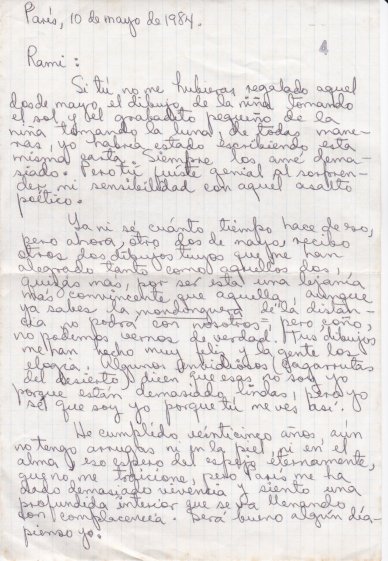 París, 10 de mayo de 1984.
4
Rami:
Si tú no me hubieras regalado aquel
dos de mayo, el dibujo de la niña tomando
el sol y el grabadito pequeño de la
niña tomando la luna, de todas mane-
ras, yo habría estado escribiendo esta
misma carta. Siempre los amé dema-
siado. Pero tú fuiste genial al sorpren-
der mi sensibilidad con aquel asalto
poético.
Ya ni sé cuánto tiempo hace de eso,
pero ahora, otro dos de mayo, recibo
otros dos dibujos tuyos que me han
alegrado tanto como aquellos dos,
quizás mas, por ser esta una lejanía
más convincente que aquella, aunque
ya sabes la de la distan-
cia no podrá con nosotros, pero, coño,
no podemos vernos de verdad. Tus dibujos
me han hecho muy feliz y la gente los
elogia. Algunos envidiosos (
del desierto) dicen que esas no soy yo
porque están demasiado lindas, pero yo
sé que soy yo porque tú me ves así.
He cumplido veinticinco años, aún
no tengo arrugas ni en la piel ni en el
alma, eso espero del espejo eternamente,
que no me traicione, pero París me ha
dado demasiada vivencia y siento una
profundida interior que se va llenando
con complacencia. Será bueno algún día-
pienso yo.